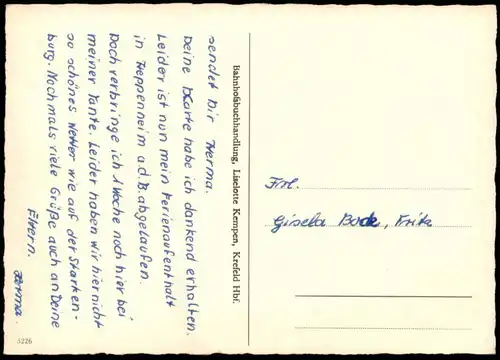 sendet Dir Herma.
Deine Karte habe ich dankend erhalten.
Leider ist nun mein Ferienaufenthalt
in Heppenheim a.d.B. abgelaufen.
Doch verbringe ich 1 Woche noch hier bei
meiner Tante. Leider haben wir hier nicht
so schönes Wetter wie auf der Starken-
burg. Nochmals viele Grüße auch an Deine
Eltern.
Herma.
5226
Bahnhofsbuchhandlung, Liselotte Kempen, Krefeld Hbf.
Frl.
Gisela Bode, Fritz